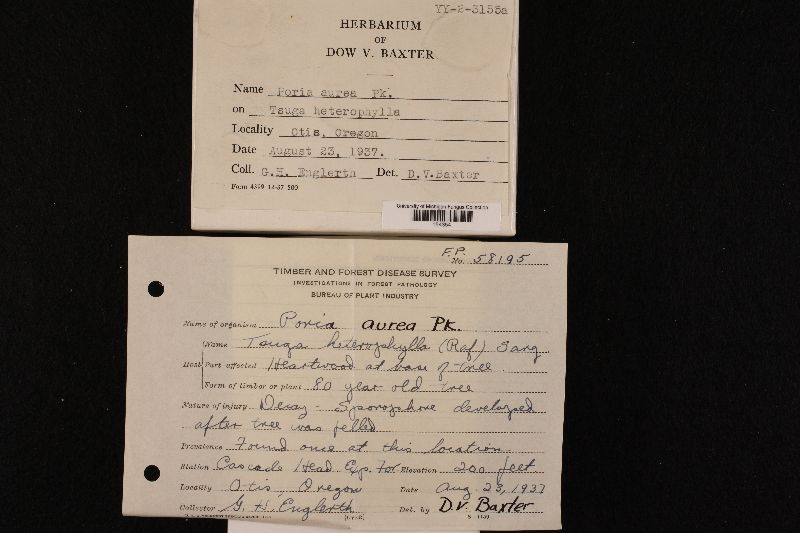 YY-2-3155a
HERBARIUM
OF
DOW V. BAXTER
Name Poria aurea Pk.
on Tsuga heterophylla
Locality Otis, Oregon
Date August 23, 1937.
Coll. G.H. Englerth Det. D.V.Baxter
Form 4399 12-37 500
University of Michigan Fungus Collection
F.P.
No. 58195
TIMBER AND FOREST DISEASE SURVEY
INVESTIGATIONS IN FOREST PATHOLOGY
BUREAU OF PLANT INDUSTRY
Name of organism Poria aurea Pk.
Name Tsuga heterophylla (Raf) Sarg
Host Part affected Heartwood at base of tree.
Form of timber or plant 80 year old tree
Nature of injury Decay - Sporophore developed
after tree was felled
Prevalence Found once at this location
Station Cascade Head Exp. For Elevation 200 feet
Locality Otis, Oregon Date Aug 23, 1937
Collector G. H. Englerth Det. by D.V. Baxter